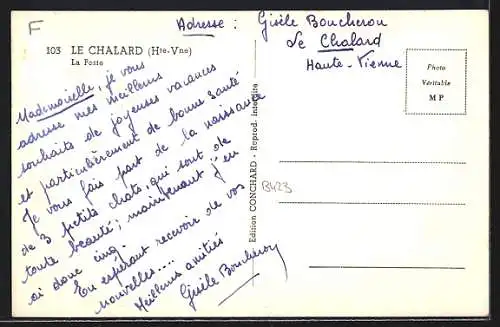 F
Adresse : Gisèle Boucheron
Le Chalard
Haute-Vienne
103 LE CHALARD (Hte-Vne)
La Poste
Mademoiselle, je vous
adresse mes meilleurs
souhaits de joyeuses vacances
et particulièrement de bonne santé
Je vous fais part de la naissance
de 3 petits chats, qui sont de
toute beauté ; maintenant j'en
ai donc cinq.
En espérant recevoir de vos
nouvelles....
Meilleurs amitiés
Gisèle Boucheron
Edition CONCHARD - Reprod. Interdite
B423
Photo
Véritable
M P